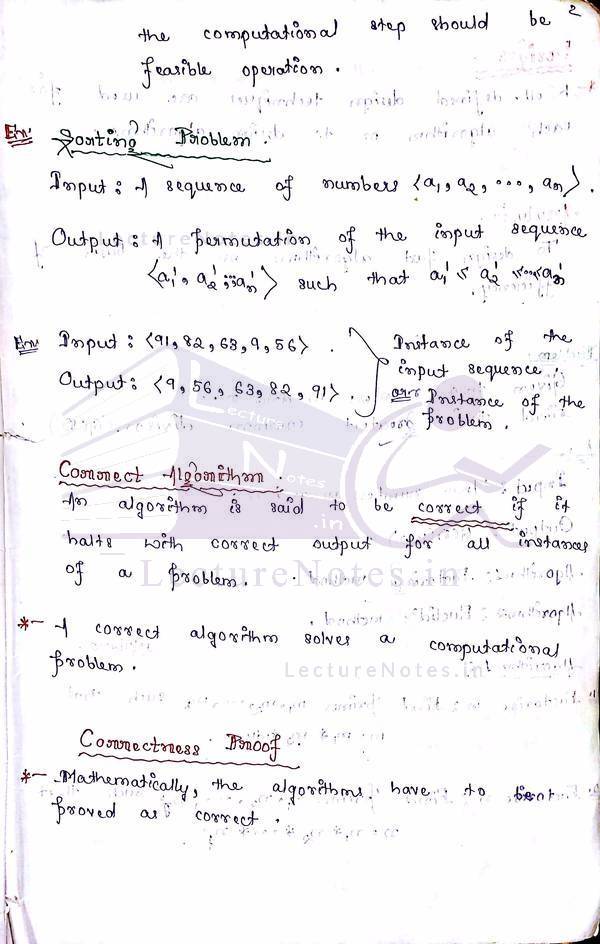 2
the computational step should be
feasible operation.
Ex: Sorting Problem.
Input: A sequence of numbers ⟨a1, a2, ..., an⟩.
Output: A permutation of the input sequence
⟨a1', a2', ... an'⟩ such that a1' ≤ a2' ≤ ... ≤ an'
Ex: Input: ⟨91, 82, 63, 9, 56⟩.
Output: ⟨9, 56, 63, 82, 91⟩.
Instance of the
input sequence.
or Instance of the
problem.
Lecture
Notes
.in
Correct Algorithm.
An algorithm is said to be correct if it
halts with correct output for all instances
of a problem.
LectureNotes.in
*- A correct algorithm solves a computational
problem.
LectureNotes.in
Correctness Proof.
*- Mathematically, the algorithms have to
proved as correct.